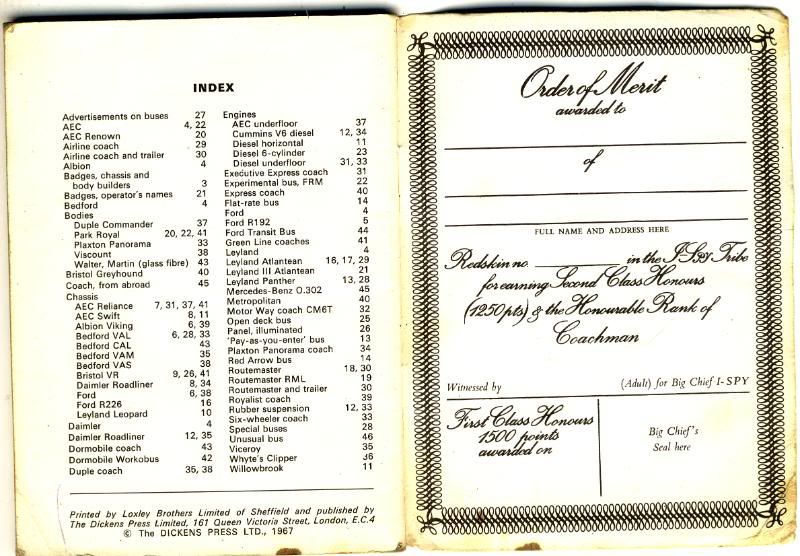 INDEX
Advertisements on buses 27
AEC 4, 22
AEC Renown 20
Airline coach 29
Airline coach and trailer 30
Albion 4
Badges, chassis and
body builders 3
Badges, operator's names 21
Bedford 4
Bodies
Duple Commander 37
Park Royal 20, 22, 41
Plaxton Panorama 33
Viscount 38
Walter, Martin (glass fibre) 43
Bristol Greyhound 40
Coach, from abroad 45
Chassis
AEC Reliance 7, 31, 37, 41
AEC Swift 8, 11
Albion Viking 6, 39
Bedford VAL 6, 28, 33
Bedford CAL 43
Bedford VAM 35
Bedford VAS 38
Bristol VR 9, 26, 41
Daimler Roadliner 8, 34
Ford 6, 38
Ford R226 16
Leyland Leopard 10
Daimler 4
Daimler Roadliner 12, 35
Dormobile coach 43
Dormobile Workobus 42
Duple coach 35, 38
Engines
AEC underfloor 37
Cummins V6 diesel 12, 34
Diesel horizontal 11
Diesel 6-cylinder 23
Diesel underfloor 31, 33
Executive Express coach 31
Experimental bus, FRM 22
Express coach 40
Flat-rate bus 14
Ford 4
Ford R192 5
Ford Transit Bus 44
Green Line coaches 41
Leyland 4
Leyland Atlantean 16, 17, 29
Leyland III Atlantean 21
Leyland Panther 13, 28
Mercedes-Benz O.302 45
Metropolitan 40
Motor Way coach CM6T 32
Open deck bus 25
Panel, illuminated 26
'Pay-as-you-enter' bus 13
Plaxton Panorama coach 34
Red Arrow bus 14
Routemaster 18, 30
Routemaster RML 19
Routemaster and trailer 30
Royalist coach 39
Rubber suspension 12, 33
Six-wheeler coach 33
Special buses 28
Unusual bus 46
Viceroy 35
Whyte's Clipper 36
Willowbrook 11
Printed by Loxley Brothers Limited of Sheffield and published by
The Dickens Press Limited, 161 Queen Victoria Street, London, E.C.4
© The DICKENS PRESS LTD., 1967
Order of Merit
awarded to
of
FULL NAME AND ADDRESS HERE
Redskin no. in the I-Spy Tribe
for earning Second Class Honours
(1250 pts) & the Honourable Rank of
Coachman
Witnessed by (Adult) for Big Chief I-SPY
First Class Honours
1500 points
awarded on
Big Chief's
Seal here